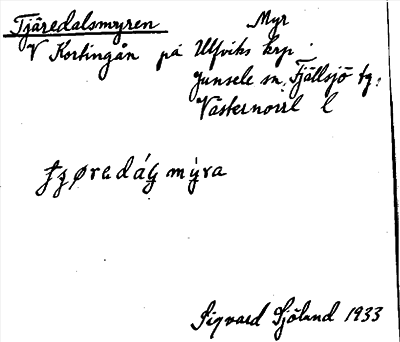 Tjäredalsmyren Myr
V Kortingån på Ulfviks krp.
Junsele sn. Fjällsjö tg:
Västernorrl l
mýra
Sigvard Sjöland 1933